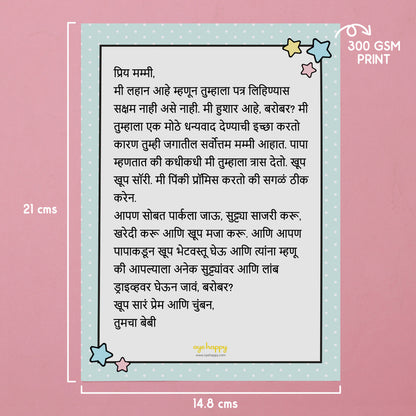 300 GSM
PRINT
प्रिय मम्मी,
मी लहान आहे म्हणून तुम्हाला पत्र लिहिण्यास
सक्षम नाही असे नाही. मी हुशार आहे, बरोबर? मी
तुम्हाला एक मोठे धन्यवाद देण्याची इच्छा करतो
कारण तुम्ही जगातील सर्वोत्तम मम्मी आहात. पापा
म्हणतात की कधीकधी मी तुम्हाला त्रास देतो. खूप
खूप सॉरी. मी पिंकी प्रॉमिस करतो की सगळं ठीक
करेन.
आपण सोबत पार्कला जाऊ, सुट्ट्या साजरी करू,
खरेदी करू आणि खूप मजा करू. आणि आपण
पापाकडून खूप भेटवस्तू घेऊ आणि त्यांना म्हणू
की आपल्याला अनेक सुट्ट्यांवर आणि लांब
ड्राइव्हवर घेऊन जावं, बरोबर?
खूप सारं प्रेम आणि चुंबन,
तुमचा बेबी
oye happy
www.oyehappy.com
21 cms
14.8 cms